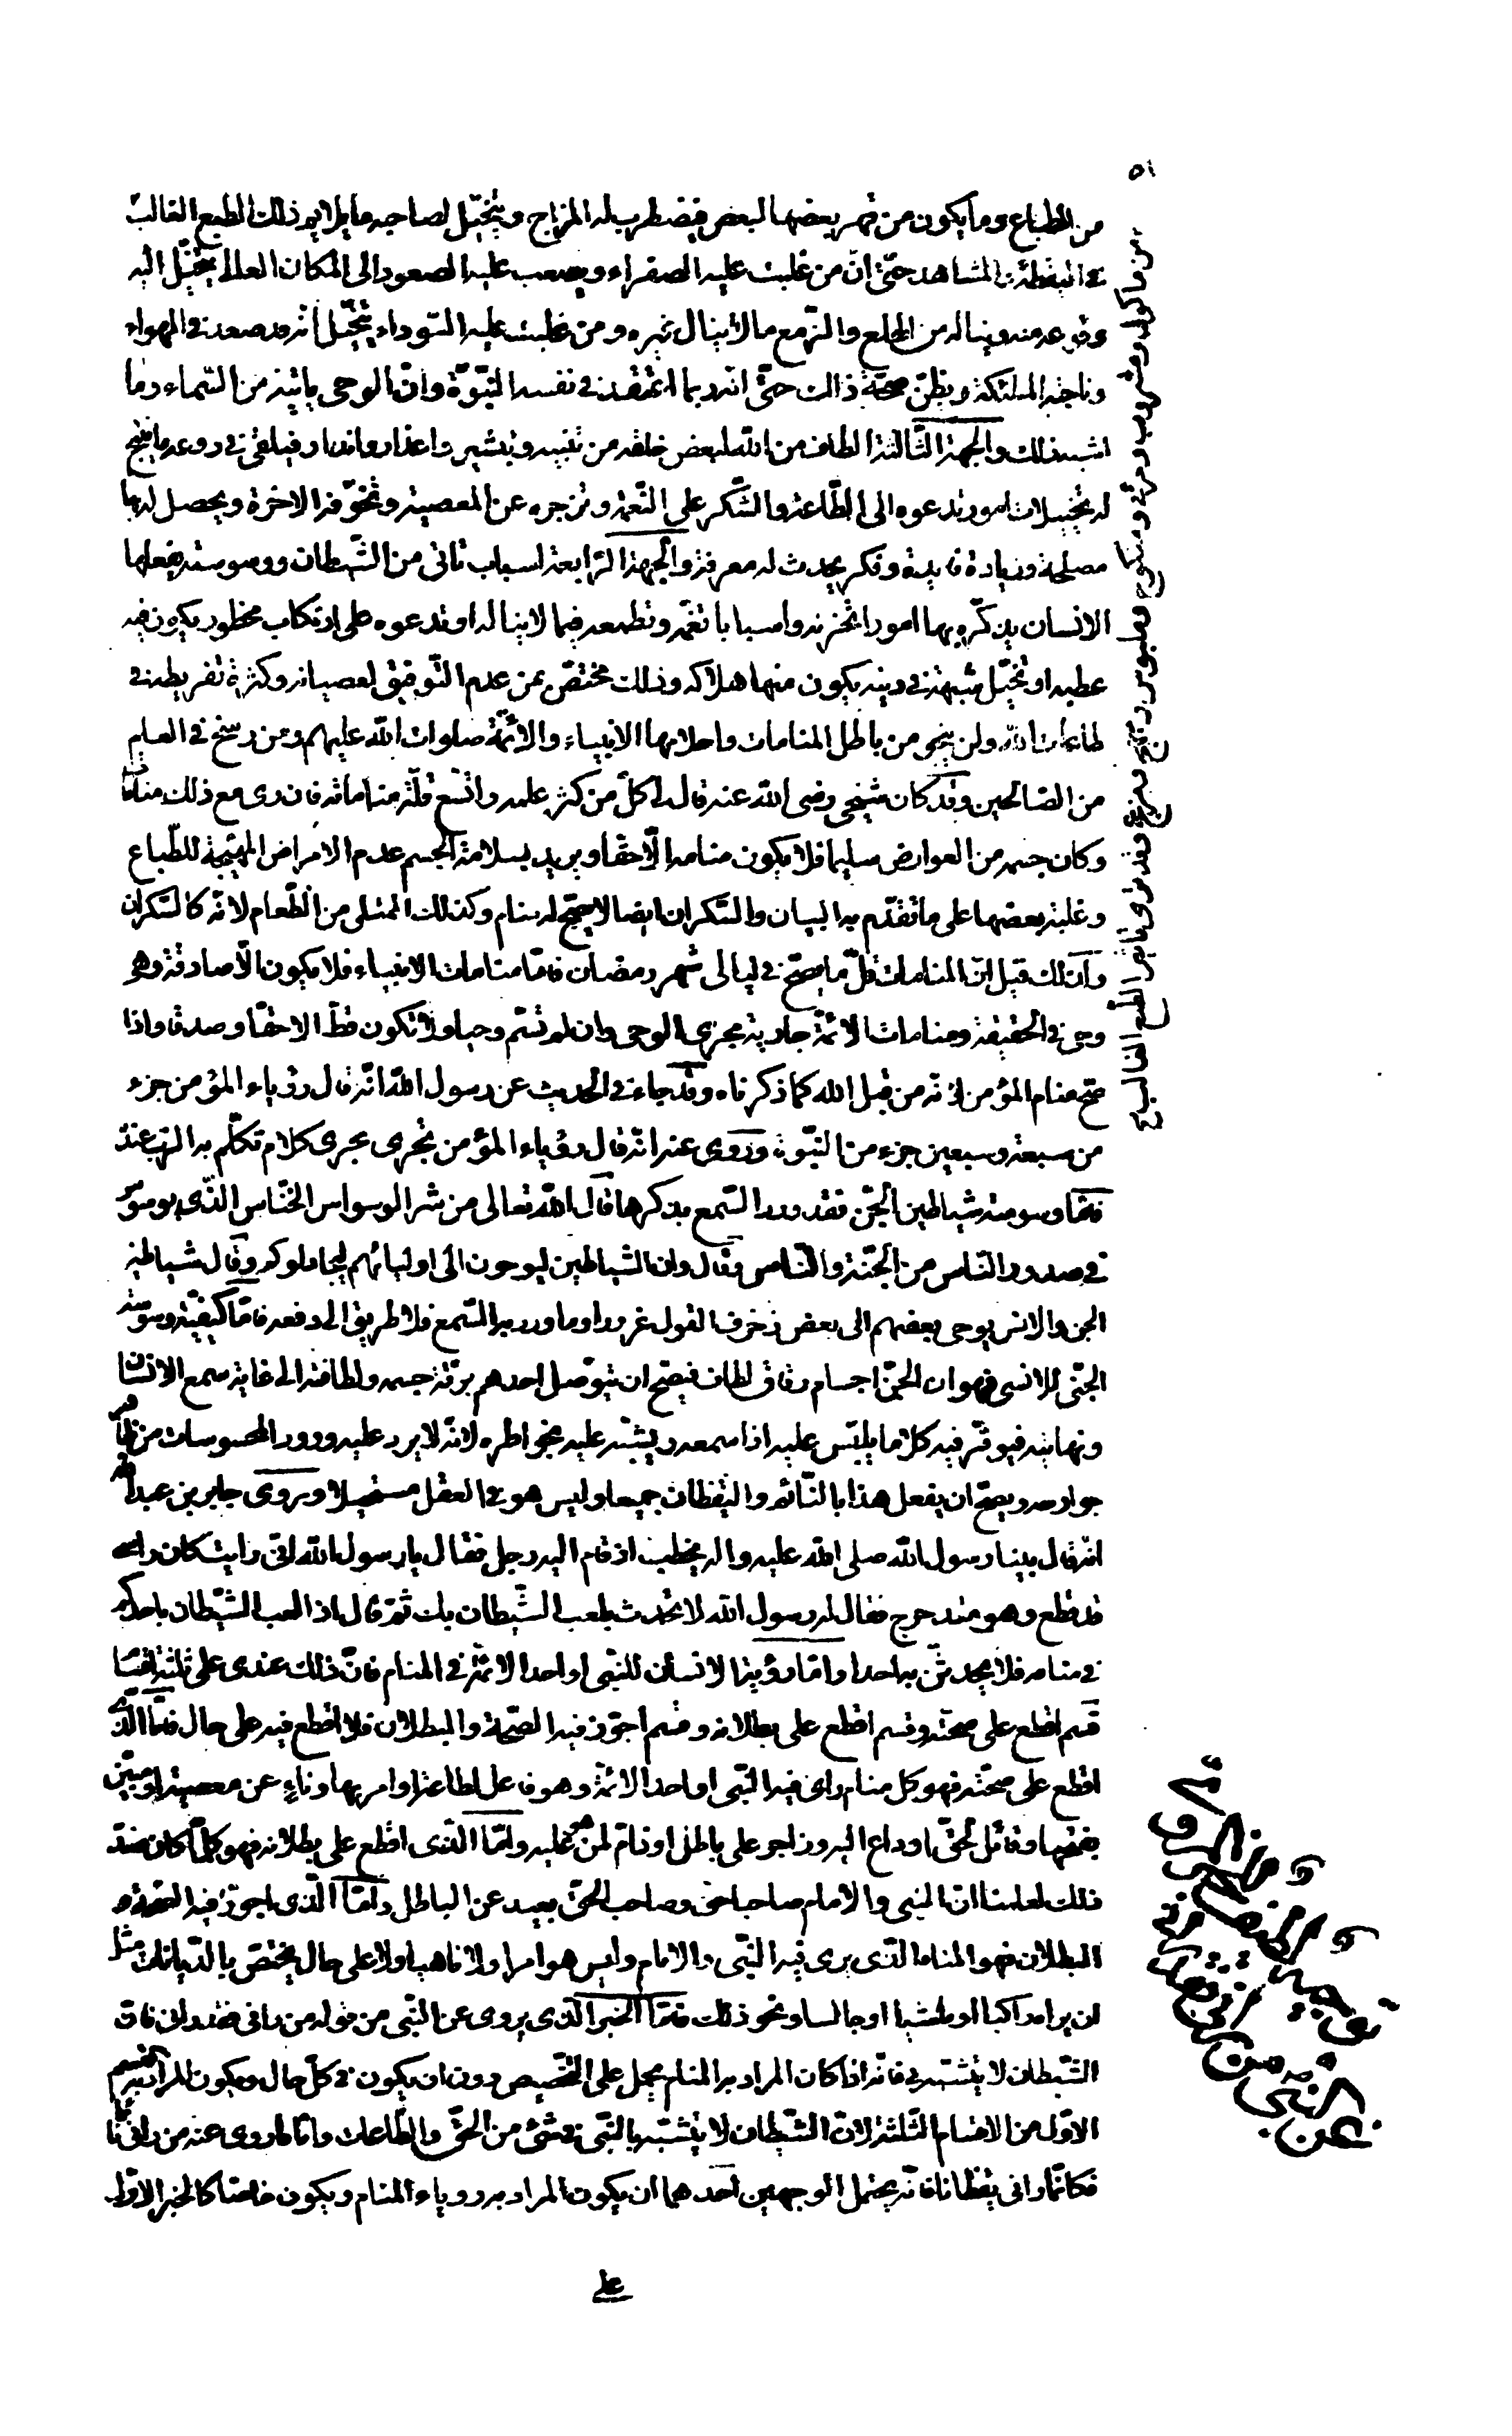 ٥١
من الطباع وما يكون من قهر بعضها لبعض فيضطرب له المزاج ويتخيّل لصاحبه ما يلايم ذلك الطبع الغالب
في اليقظة المشاهد حتّى انّ من غلبت عليه الصفراء ويصعب عليه الصعود الى المكان العالى يتخيّل اليه
وقوعه منه ويناله من الهلع والزّمع ما لا ينال غيره ومن غلبت عليه السّوداء يتخيّل انّه قد صعد في الهواء
وناجته الملئكة ويظنّ صحّة ذالك حتّى انّه ربما اعتقد في نفسه النّبوّة وانّ الوحى ياتيه من السّماء وما
اشبه ذلك والجهة الثّالثة الطاف من الله لبعض خلقه من تنبيه وتبشير واعذار وانذار فيلقى في روعه ما ينتج
له تخييلات امور تدعوه الى الطّاعة والشّكر على النّعمة وتزجره عن المعصية وتخوّفه الاخرة ويحصل له بها
مصلحة وزيادة فايدة وفكر يحدث له معرفة والجهة الرّابعة اسباب تاتى من الشّيطان ووسوسة يفعلها
الانسان يذكّره بها امورا تحزنه واسبابا تغمّه وتطمعه فيما لا يناله او تدعوه على ارتكاب محظور يكون فيه
عطبه او تخيّل شبهة في دينه يكون منها هلاكه وذلك مختصّ بمن عدم التّوفيق لعصيانه وكثرة تفريطه في
طاعات الله ولن ينجو من باطل المنامات واحلامها الا الانبياء والائمّة صلوات الله عليهم ومن رسخ في العلم
من الصّالحين وقد كان شيخى رضى الله عنه قال لى كلّ من كثر علمه واتّسع قلّت مناماته فان رى مع ذلك مناما
وكان جسمه من العوارض سليما فلا يكون منامه الّا حقّا ويريد بسلامة الجسم عدم الامراض المهيّجة للطّباع
وغلبة بعضها على ما تقدّم به البيان والسّكران ايضا لا يصحّ له منام وكذلك الممتلى من الطّعام لانّه كالسّكران
وكذلك قيل انّ المنامات قلّ ما يصحّ في ليالى شهر رمضان فامّا منامات الانبياء فلا يكون الّا صادقة وهى
وحى في الحقيقة ومنامات الائمّة جارية مجرى الوحى وان لم تسمّ وحيا ولا تكون قطّ الا حقّا وصدقا واذا
صحّ منام المؤمن لانّه من قبل الله كما ذكرناه وقد جاء في الحديث عن رسول الله انّه قال رؤياء المؤمن جزء
من سبعة وسبعين جزء من النّبوّة وروى عنه انّه قال رؤياء المؤمن تجرى مجرى كلام تكلّم به الرّب عنده
فامّا وسوسة شياطين الجنّ فقد ورد السّمع بذكرها قال الله تعالى من شر الوسواس الخنّاس الّذى يوسوس
في صدور النّاس من الجنّة والنّاس وقال وان الشياطين ليوحون الى اوليائهم ليجادلوكم وقال شياطين
الجن والانس يوحى بعضهم الى بعض زخرف القول غرورا وما ورد به السّمع فلا طريق الى دفعه فامّا كيفيّة وسوسة
الجنّى للانسى فهو ان الجنّ اجسام رقاق لطاف فيصحّ ان يتوصّل احدهم برقّة جسمه ولطافته الى غاية سمع الانسان
ونهايته فيوقر فيه كلاما يلبّس عليه اذا سمعه ويشتبه عليه بخواطره لانّه لا يرد عليه ورود المحسوسات من ظاهر
جوارحه ويصحّ ان يفعل هذا بالنّائم واليقظان جميعا وليس هو في العقل مستحيلا وروى جابر بن عبد الله
انّه قال بينا رسول الله صلى الله عليه واله يخطب اذ قام اليه رجل فقال يا رسول الله انّى رايت كان راسى
قد قطع وهو يتدحرج فقال له رسول الله لا تحدث بلعب الشّيطان بك ثمّ قال اذا لعب الشّيطان باحدكم
في منامه فلا يحدثنّ به احدا وامّا رؤية الانسان للنّبى او احد الائمّة في المنام فانّ ذلك عندى على ثلثة اقسام
قسم اقطع على صحّته وقسم اقطع على بطلانه وقسم اجوّز فيه الصّحّة والبطلان فلا اقطع فيه على حال فامّا الّذى
اقطع على صحّته فهو كل منام راى فيه النّبى او احد الائمّة وهو فاعل لطاعة او امر بها وناء عن معصية او مبيّن
بقبحها وقائل لحقّ او داع اليه وزاجر على باطل او ذامّ لمن هو عليه وامّا الّذى اقطع على بطلانه فهو كلّما كان ضدّ
ذلك لعلمنا انّ النبى والامام صاحبا حق وصاحب الحقّ بعيد عن الباطل وامّا الّذى اجوّز فيه الصّحّة و
البطلان فهو المنام الذى يرى فيه النّبى والامام وليس هو امرا ولا ناهيا ولا على حال يختصّ بالدّيانات مثل
ان يراه راكبا او ماشيا او جالسا ونحو ذلك فامّا الخبر الّذى يروى عن النّبى من قوله من رانى فقد رانى فانّ
الشّيطان لا يتشبّه بى فانّه اذا كان المراد به المنام يحمل على التّخصيص دون ان يكون في كلّ حال ويكون المراد به القسم
الاوّل من الاقسام الثلثة لانّ الشّيطان لا يتشبّه بالنّبى في شئ من الحقّ والطّاعات وامّا ما روى عنه من رانى نائما
فكانّما رانى يقظانا فانّه يحتمل الوجهين احدهما ان يكون المراد به روياء المنام ويكون خاصّا كالخبر الاوّل
على
من ماكول ومشروب ومرئى ومنكوح وملبوس فقد نرى تاثير الطبع الغالب
عن النبى من